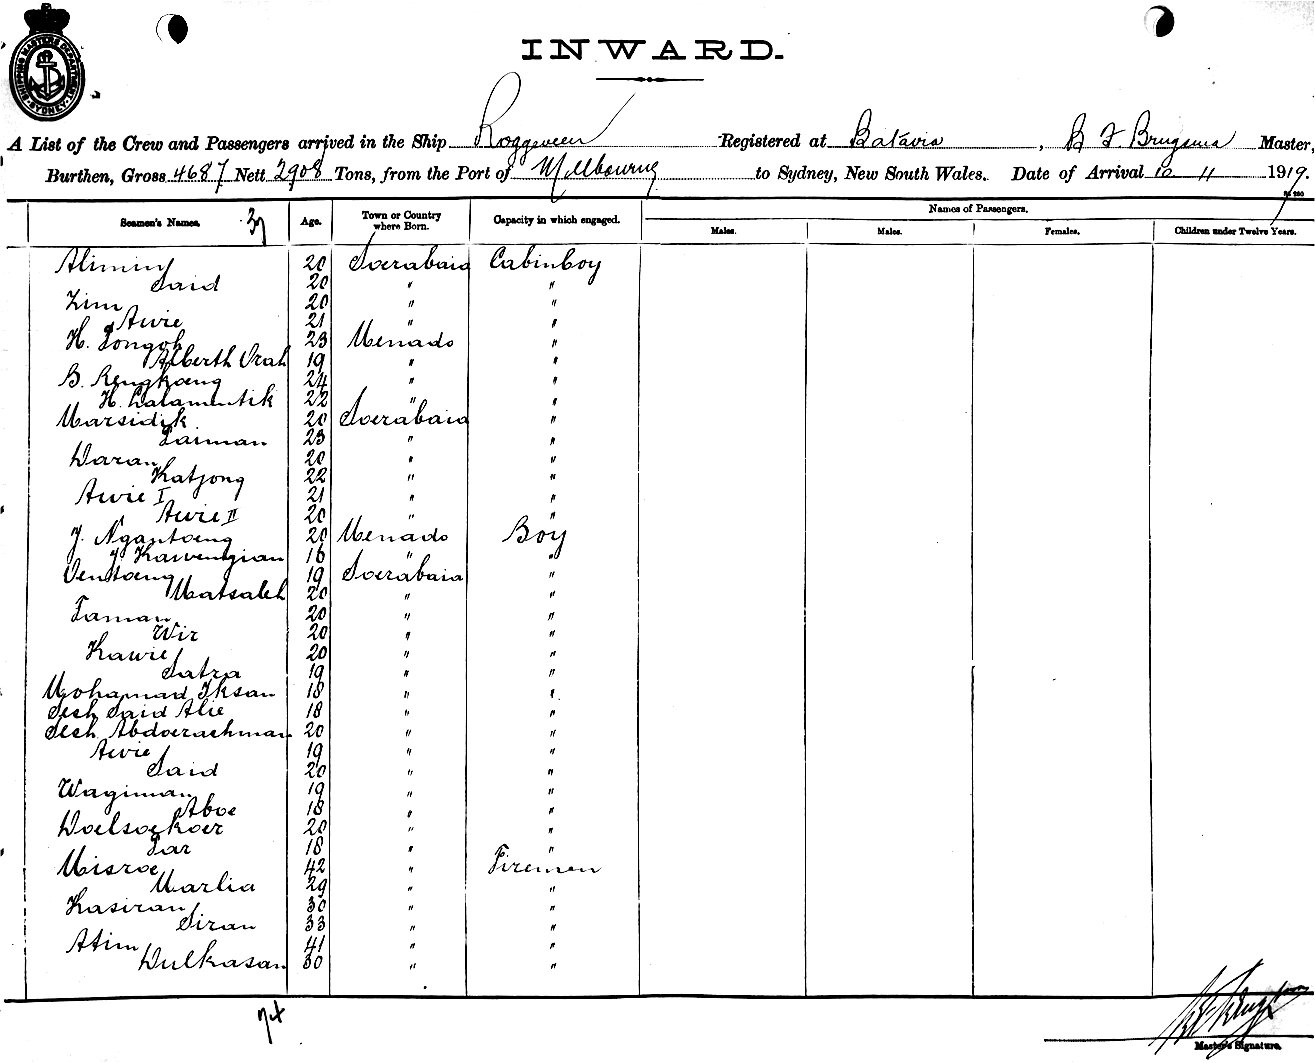 SHIPPING MASTERS DEPARTMENT SYDNEY
INWARD.
A List of the Crew and Passengers arrived in the Ship Roggeveen Registered at Batavia, B F Brugsma Master,
Burthen, Gross 4687 Nett 2908 Tons, from the Port of Melbourne to Sydney, New South Wales. Date of Arrival 10 11 1919.
Seamen's Names. Age. Town or Country where Born. Capacity in which engaged. Names of Passengers.
Males. Males. Females. Children under Twelve Years.
Alimin 20 Soerabaia Cabinboy
Said 20 " "
Zim 20 " "
Awie 21 " "
H. Longoh 23 Menado "
Alberth Orah 19 " "
B. Rengkoeng 24 " "
H. Lalamentik 22 " "
Marsidik. 20 Soerabaia "
Laiman 23 " "
Daran 20 " "
Katjong 22 " "
Awie I 21 " "
Awie II 20 " "
J. Ngantoeng 20 Menado Boy
J Kawengian 16 " "
Oentoeng 19 Soerabaia "
Matsaleh 20 " "
Taman 20 " "
Wir 20 " "
Kawie 20 " "
Satra 19 " "
Mohamad Iksan 18 " "
Sech Said Alie 18 " "
Sech Abdoerachman 20 " "
Awie 19 " "
Said 20 " "
Wagiman 19 " "
Aboe 18 " "
Doelsoekoer 20 " "
Jar 18 " "
Misroe 42 " Firemen
Marlia 29 " "
Kasiran 30 " "
Siran 33 " "
Atim 41 " "
Dulkasan 30 " "
74
Master's Signature.